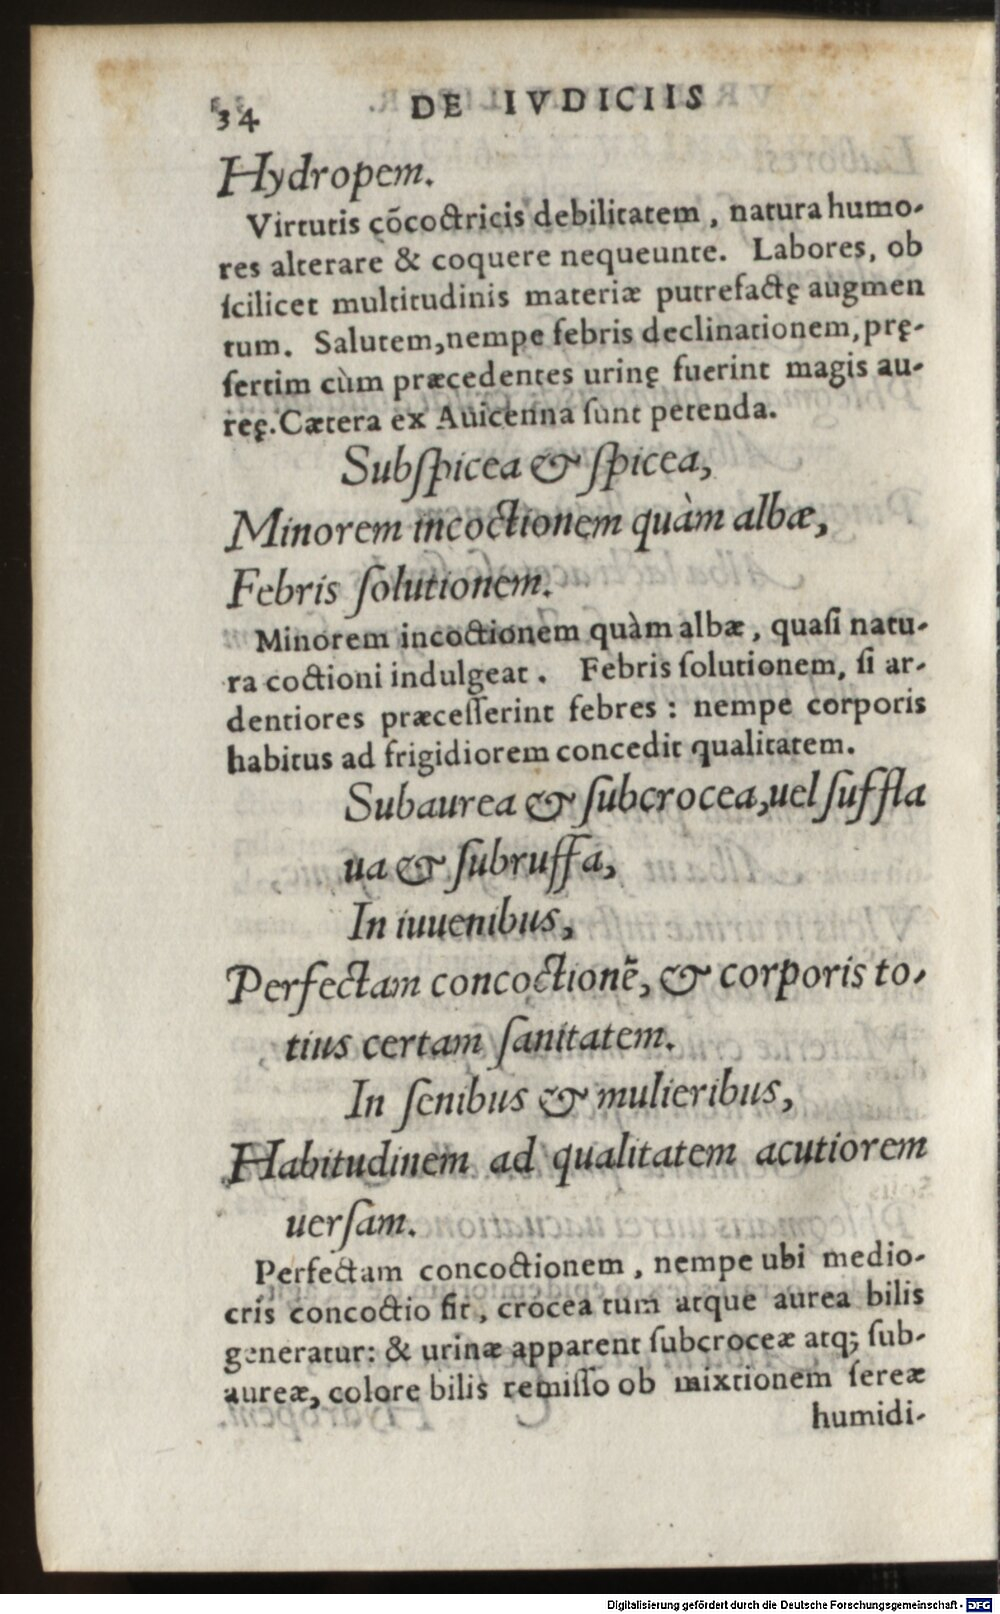 34 DE IVDICIIS
Hydropem.
Virtutis cõcoctricis debilitatem, natura humo-
res alterare & coquere nequeunte. Labores, ob
ſcilicet multitudinis materiæ putrefactę augmen
tum. Salutem, nempe febris declinationem, prę-
ſertim cùm præcedentes urinę fuerint magis au-
reę. Cætera ex Auicenna ſunt petenda.
Subſpicea & ſpicea,
Minorem incoctionem quàm albæ,
Febris ſolutionem.
Minorem incoctionem quàm albæ, quaſi natu-
ra coctioni indulgeat. Febris ſolutionem, ſi ar-
dentiores præceſſerint febres: nempe corporis
habitus ad frigidiorem concedit qualitatem.
Subaurea & ſubcrocea, uel ſuffla
ua & ſubruffa,
In iuuenibus,
Perfectam concoctionẽ, & corporis to-
tius certam ſanitatem.
In ſenibus & mulieribus,
Habitudinem ad qualitatem acutiorem
uerſam.
Perfectam concoctionem, nempe ubi medio-
cris concoctio fit, crocea tum atque aurea bilis
generatur: & urinæ apparent ſubcroceæ atq; ſub-
aureæ, colore bilis remiſſo ob mixtionem ſereæ
humidi-
Digitalisierung gefördert durch die Deutsche Forschungsgemeinschaft - DFG